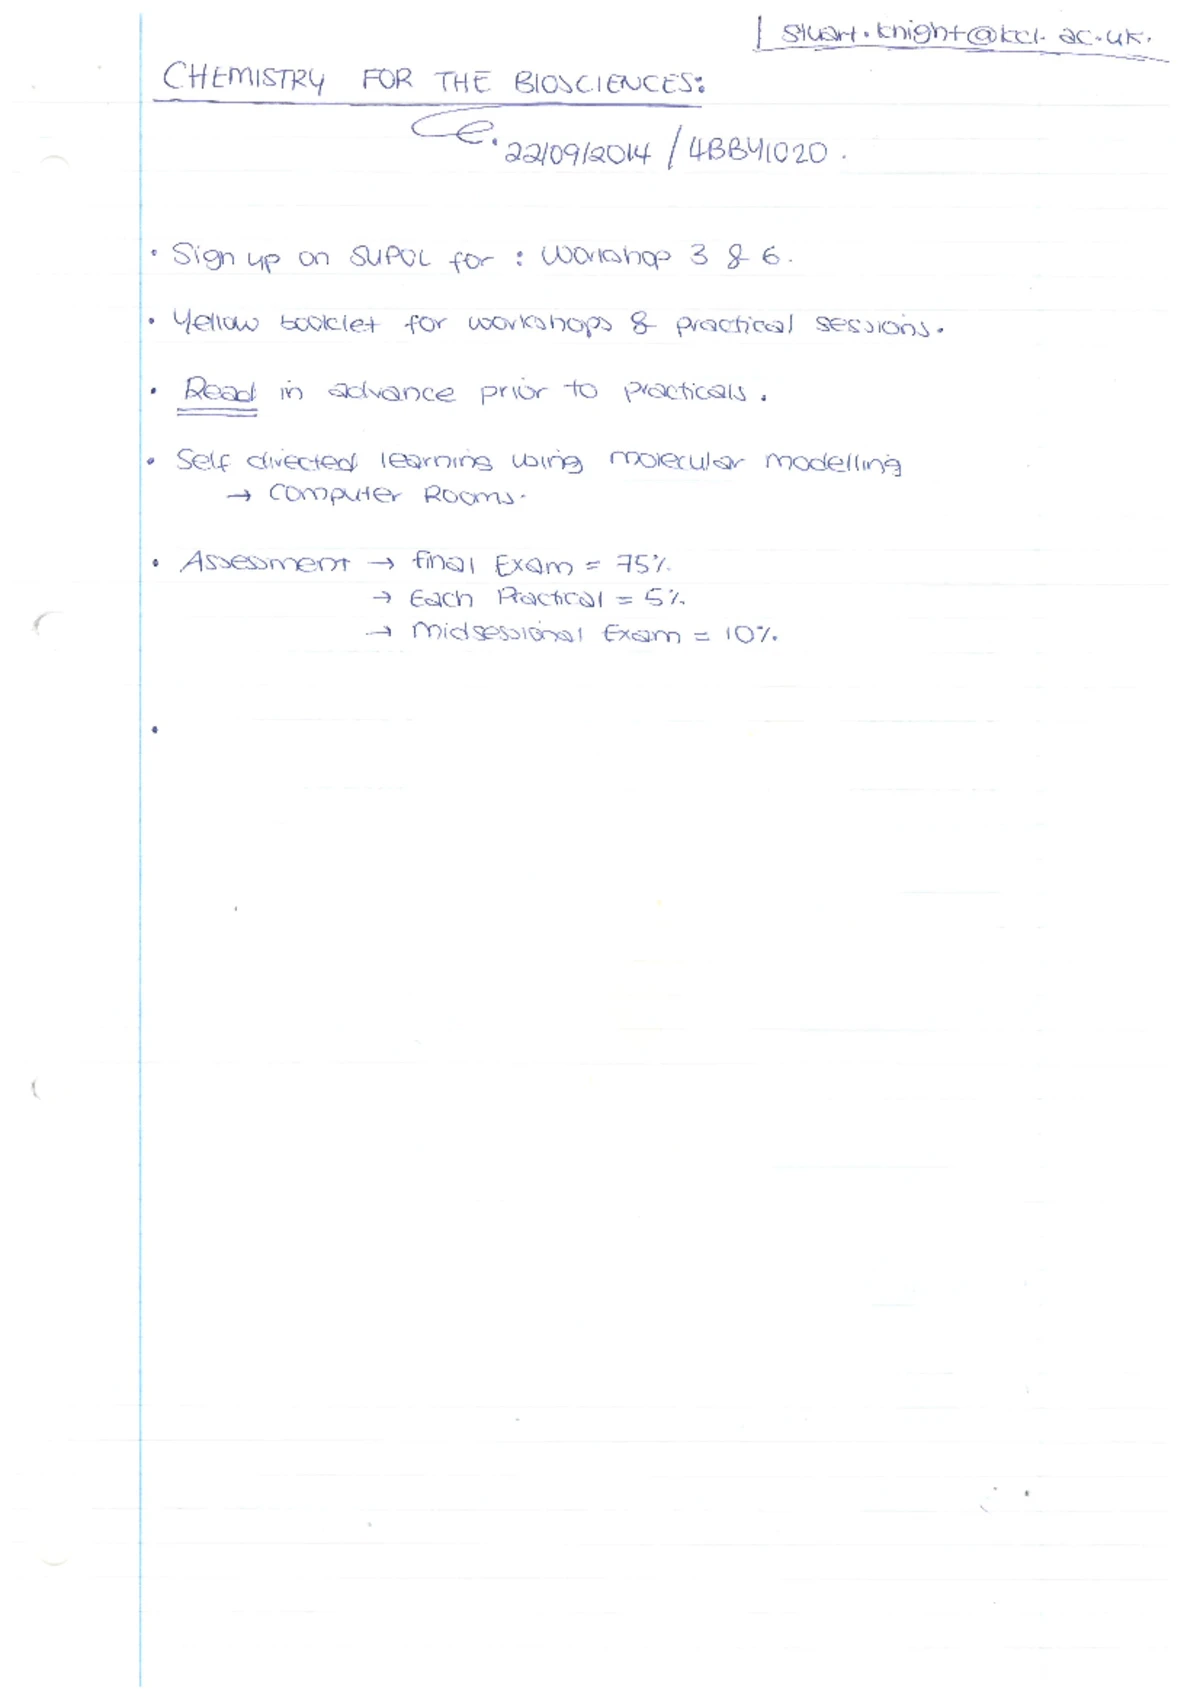 stuart.knight@kcl.ac.uk.
CHEMISTRY FOR THE BIOSCIENCES:
22/09/2014 / 4BBY1020.
• Sign up on SUPOL for : Workshop 3 & 6.
• Yellow booklet for workshops & practical sessions.
• Read in advance prior to practicals.
• Self directed learning using molecular modelling
→ Computer Rooms.
• Assessment → final Exam = 75%.
→ Each Practical = 5%.
→ Midsessional Exam = 10%.
•